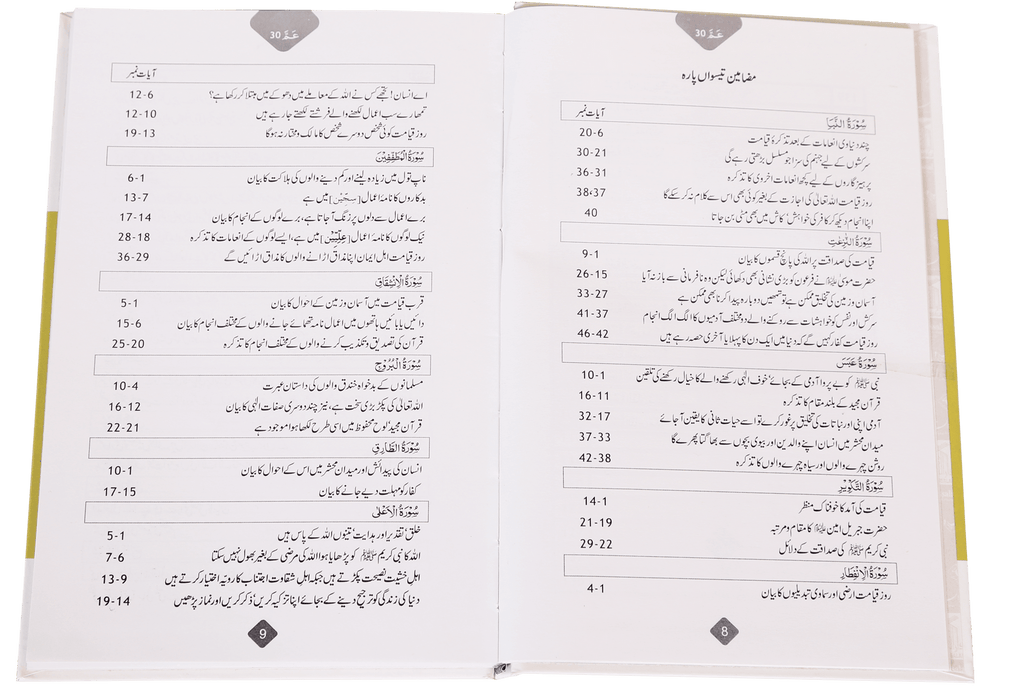 عَمَّ 30
مضامین تیسواں پارہ
آیات نمبر
سُوْرَةُ النَّبَاِ
چند دنیاوی انعامات کے بعد تذکرۂ قیامت 6-20
سرکشوں کے لیے جہنم کی سزا جو مسلسل بڑھتی رہے گی 21-30
پرہیزگاروں کے لیے کچھ انعامات اخروی کا تذکرہ 31-36
روز قیامت اللہ تعالیٰ کی اجازت کے بغیر کوئی بھی اس سے کلام نہ کر سکے گا 37،38
اپنا انجام دیکھ کر کافر کی خواہش‘ کاش میں بھی مٹی بن جاتا 40
سُوْرَةُ النّٰزِعٰتِ
قیامت کی صداقت پر اللہ کی پانچ قسموں کا بیان 1-9
حضرت موسیٰ علیہ السلام نے فرعون کو بڑی نشانی بھی دکھائی لیکن وہ نافرمانی سے باز نہ آیا 15-26
آسمان وزمین کی تخلیق ممکن ہے تو تمھیں دوبارہ پیدا کرنا بھی ممکن ہے 27-33
سرکش اور نفس کو خواہشات سے روکنے والے دو مختلف آدمیوں کا الگ الگ انجام 37-41
روز قیامت کفار کہیں گے کہ دنیا میں ایک دن کا پہلا یا آخری حصہ رہے ہیں 42-46
سُوْرَةُ عَبَسَ
نبی ﷺ کو بے پروا آدمی کے بجائے‘ خوف الٰہی رکھنے والے کا خیال رکھنے کی تلقین 1-10
قرآن مجید کے بلند مقام کا تذکرہ 11-16
آدمی اپنی اور نباتات کی تخلیق پر غور کرے تو اسے حیات ثانی کا یقین آ جائے 17-32
میدان محشر میں انسان اپنے والدین اور بیوی بچوں سے بھاگتا پھرے گا 33-37
روشن چہرے والوں اور سیاہ چہرے والوں کا تذکرہ 38-42
سُوْرَةُ التَّكْوِيْرِ
قیامت کی آمد کا خوفناک منظر 1-14
حضرت جبریل امین علیہ السلام کا مقام و مرتبہ 19-21
نبی کریم ﷺ کی صداقت کے دلائل 22-29
سُوْرَةُ الْاِنْفِطَارِ
روز قیامت ارضی اور سماوی تبدیلیوں کا بیان 1-4
8
عَمَّ 30
آیات نمبر
اے انسان! تجھے کس نے اللہ کے معاملے میں دھوکے میں مبتلا کر رکھا ہے؟ 6-12
تمھارے سب اعمال لکھنے والے فرشتے لکھتے جا رہے ہیں 10-12
روز قیامت کوئی شخص دوسرے شخص کا مالک و مختار نہ ہو گا 13-19
سُوْرَةُ الْمُطَفِّفِيْنَ
ناپ تول میں زیادہ لینے اور کم دینے والوں کی ہلاکت کا بیان 1-6
بدکاروں کا نامۂ اعمال [سِجِّيْن] میں ہے 7-13
برے اعمال سے دلوں پر زنگ آ جاتا ہے، برے لوگوں کے انجام کا بیان 14-17
نیک لوگوں کا نامۂ اعمال [عِلِّيِّيْنَ] میں ہے، ایسے لوگوں کے انعامات کا تذکرہ 18-28
روز قیامت اہل ایمان اپنا مذاق اڑانے والوں کا مذاق اڑائیں گے 29-36
سُوْرَةُ الْاِنْشِقَاقِ
قرب قیامت میں آسمان وزمین کے احوال کا بیان 1-5
دائیں یا بائیں ہاتھوں میں اعمال نامہ تھمائے جانے والوں کے مختلف انجام کا بیان 6-15
قرآن کی تصدیق و تکذیب کرنے والوں کے مختلف انجام کا تذکرہ 20-25
سُوْرَةُ الْبُرُوْجِ
مسلمانوں کے بدخواہ خندق والوں کی داستان عبرت 4-10
اللہ تعالیٰ کی پکڑ بڑی سخت ہے، نیز چند دوسری صفات الٰہی کا بیان 12-16
قرآن مجید‘ لوح محفوظ میں اسی طرح لکھا ہوا موجود ہے 21-22
سُوْرَةُ الطَّارِقِ
انسان کی پیدائش اور میدان محشر میں اس کے احوال کا بیان 1-10
کفار کو مہلت دیے جانے کا بیان 15-17
سُوْرَةُ الْاَعْلٰى
خلق‘ تقدیر اور ہدایت‘ تینوں اللہ کے پاس ہیں 1-5
اللہ کا نبی کریم ﷺ کو پڑھایا ہوا اللہ کی مرضی کے بغیر بھول نہیں سکتا 6-7
اہل خشیت نصیحت پکڑتے ہیں جبکہ اہل شقاوت اجتناب کا رویہ اختیار کرتے ہیں 9-13
دنیا کی زندگی کو ترجیح دینے کے بجائے اپنا تزکیہ کریں‘ ذکر کریں اور نماز پڑھیں 14-19
9